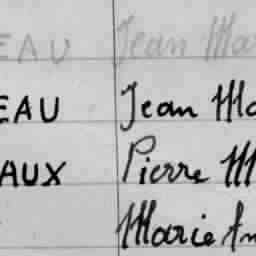 EAU Jean Ma
EAU Jean Ma
AUX Pierre M
Marie An